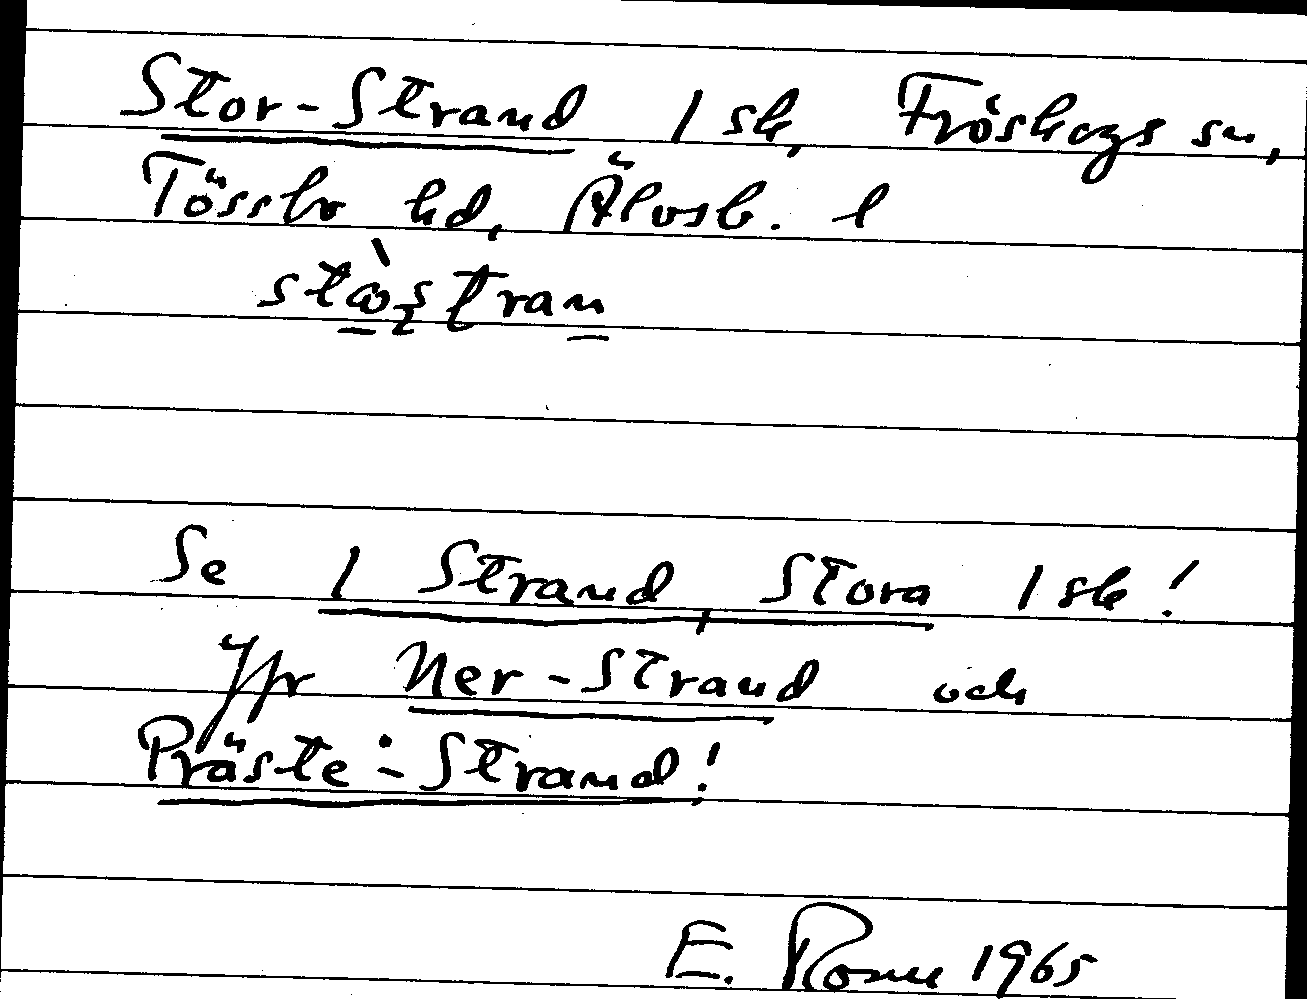 Stor-Strand 1 sk, Fröskogs sn,
Tössbo hd, Älvsb. l
stòstran
Se 1 Strand, Stora 1 sk!
Jfr Ner-Strand och
Präste-Strand!
E. 1965